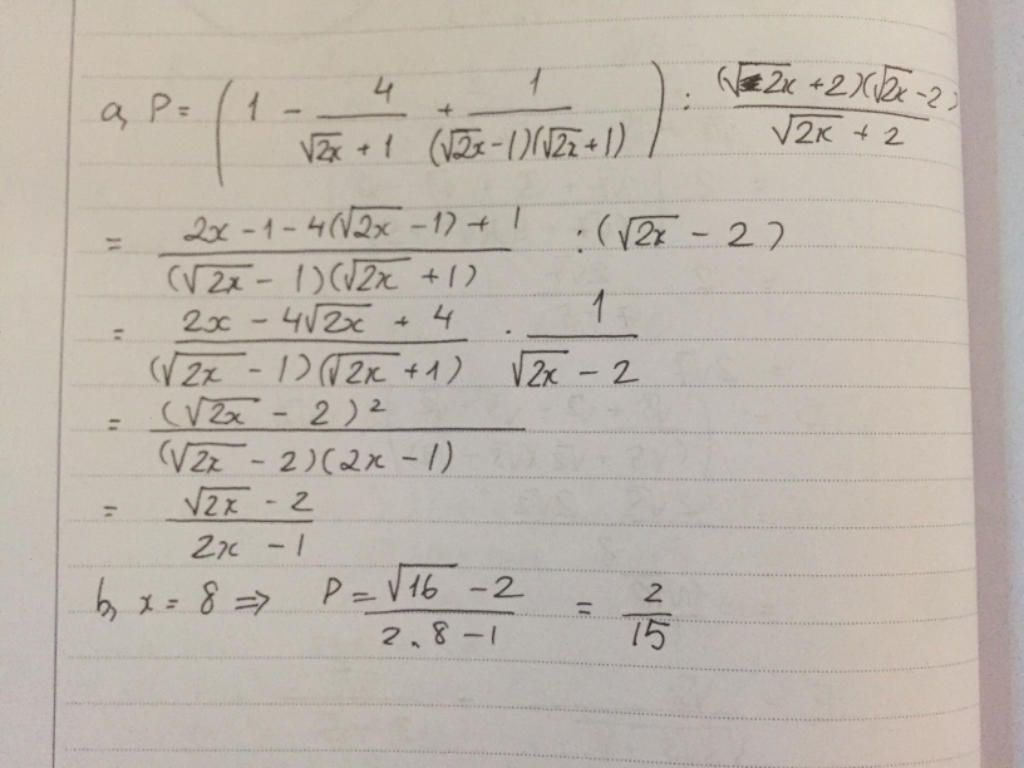 a, P = ( 1 - 4/(√2x + 1) + 1/((√2x - 1)(√2x + 1)) ) : (√2x + 2)(√2x - 2)/(√2x + 2)
= (2x - 1 - 4(√2x - 1) + 1)/((√2x - 1)(√2x + 1)) : (√2x - 2)
= (2x - 4√2x + 4)/((√2x - 1)(√2x + 1)) . 1/(√2x - 2)
= (√2x - 2)²/((√2x - 2)(2x - 1))
= (√2x - 2)/(2x - 1)
b, x = 8 => P = (√16 - 2)/(2.8 - 1) = 2/15